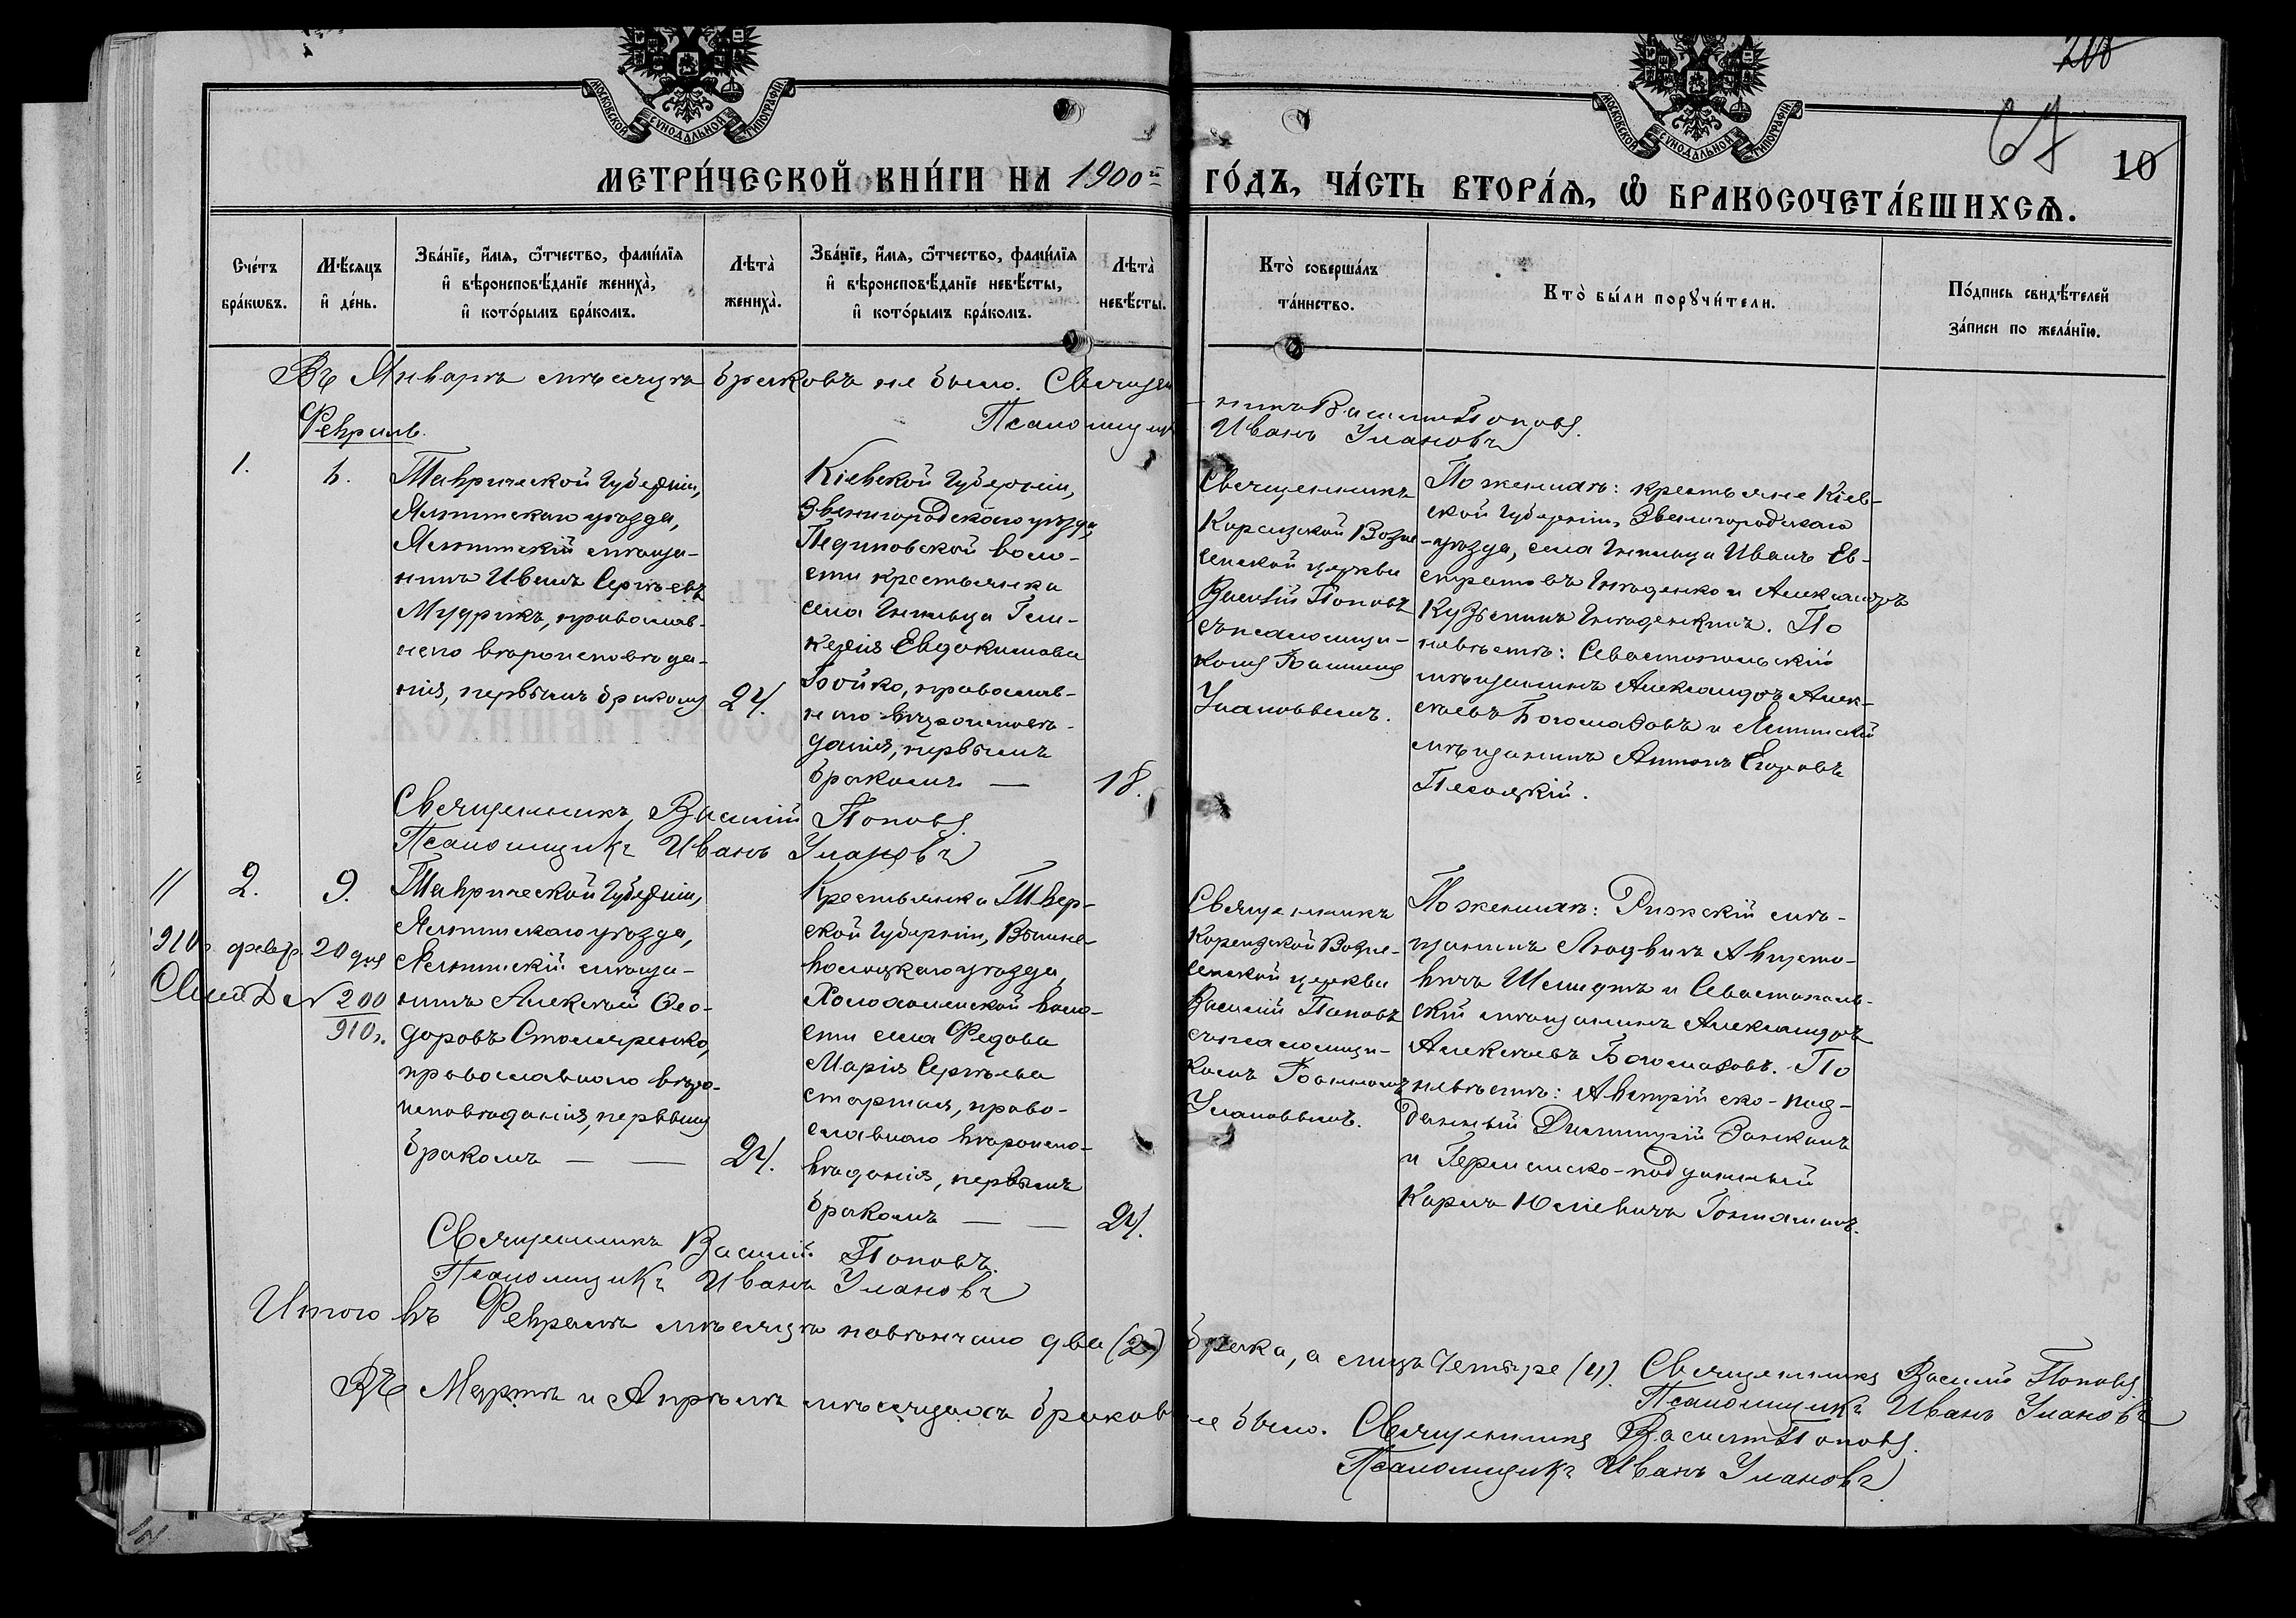 МОСКОВСКОЙ СУНОДАЛЬНОЙ ТИПОГРАФІИ
МОСКОВСКОЙ СУНОДАЛЬНОЙ ТИПОГРАФІИ
10
МЕТРИ́ЧЕСКОЙ КНИ́ГИ НА 1900й ГО́ДЪ, ЧА́СТЬ ВТОРА́Ѧ, Ѽ БРАКОСОЧЕТА́ВШИХСѦ.
Сче́тъ бра́кωвъ.
Мѣ́сяцъ и҆ де́нь.
Зва́нїе, и҆́мя, ѻ҆́тчество, фами́лїя
и҆ вѣроисповѣ́данїе жениха̀,
и҆ кото́рымъ бра́комъ.
Лѣта̀ жениха̀.
Зва́нїе, и҆́мя, ѻ҆́тчество, фами́лїя
и҆ вѣроисповѣ́данїе невѣ́сты,
и҆ кото́рымъ бра́комъ.
Лѣта̀ невѣ́сты.
Кто̀ соверша́лъ
та́инство.
Кто̀ бы́ли порꙋчи́тели.
По́дпись свидѣ́телей
за́писи по жела́нїю.
Въ Январѣ мѣсяцѣ браковъ не было. Священникъ Василій Поповъ.
Псаломщикъ Иванъ Улановъ
Февраль.
1.
Таврической Губерніи,
Ялтинскаго уѣзда,
Ялтинскій мѣща-
нинъ Иванъ Сергѣевъ
Мудрикъ, православ-
наго вѣроисповѣда-
нія, первымъ бракомъ
24.
Кіевской Губерніи,
Звенигородскаго уѣзда,
Пединовской воло-
сти крестьянка
села Гнильца Гли-
керія Евдокимова
Бойко, православ-
наго вѣроисповѣ-
данія, первымъ
бракомъ —
18.
Священникъ
Кореизской Возне-
сенской церкви
Василій Поповъ
съ псаломщи-
комъ Іоанномъ
Улановымъ.
По женихѣ: крестьяне Кіев-
ской Губерніи, Звенигородскаго
уѣзда, села Гнильца Иванъ Ев-
стратовъ Гнѣденко и Александръ
Кузьминъ Гнѣденкинъ. По
невѣстѣ: Севастопольскій
мѣщанинъ Александръ Алек-
сѣевъ Богомазовъ и Ялтинскій
мѣщанинъ Антонъ Егоровъ
Песоцкій.
Священникъ Василій Поповъ
Псаломщикъ Иванъ Улановъ
2.
9.
910г. февр. 20 дня
№ 200
910г.
Таврической Губерніи,
Ялтинскаго уѣзда,
Ялтинскій мѣща-
нинъ Алексѣй Ѳео-
доровъ Столяренко,
православнаго вѣро-
исповѣданія, первымъ
бракомъ — —
24.
Крестьянка Твер-
ской Губерніи, Вышне-
волоцкаго уѣзда,
Холохоленской воло-
сти села Федова
Марія Сергѣева
старшая, право-
славнаго вѣроиспо-
вѣданія, первымъ
бракомъ — —
24.
Священникъ
Кореизской Возне-
сенской церкви
Василій Поповъ
съ псаломщи-
комъ Іоанномъ
Улановымъ.
По женихѣ: Рижскій мѣ-
щанинъ Людвигъ Августо-
вичъ Шмидтъ и Севастополь-
скій мѣщанинъ Александръ
Алексѣевъ Богомазовъ. По
невѣстѣ: Австрійско-под-
данный Димитрій Занкинъ
и Германско-подданный
Карлъ Юліевичъ
Священникъ Василій Поповъ.
Псаломщикъ Иванъ Улановъ
Итого въ Февралѣ мѣсяцѣ повѣнчано два (2) брака, а лицъ четыре (4). Священникъ Василій Поповъ
Псаломщикъ Иванъ Улановъ
Въ Мартѣ и Апрѣлѣ мѣсяцахъ браковъ не было. Священникъ Василій Поповъ.
Псаломщикъ Иванъ Улановъ